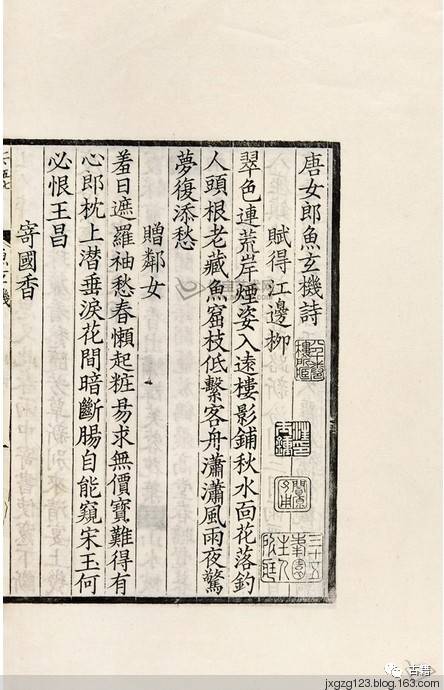 唐女郎魚玄機詩
賦得江邊栁
翠色連荒岸煙姿入遠樓影鋪秋水面花落釣
人頭根老藏魚窟枝低繫客舟瀟瀟風雨夜驚
夢復添愁
贈鄰女
羞日遮羅袖愁春懶起粧易求無價寶難得有
心郎枕上潛垂淚花間暗斷腸自能窺宋玉何
必恨王昌
寄國香
古籍
jxgzg123.blog.163.com